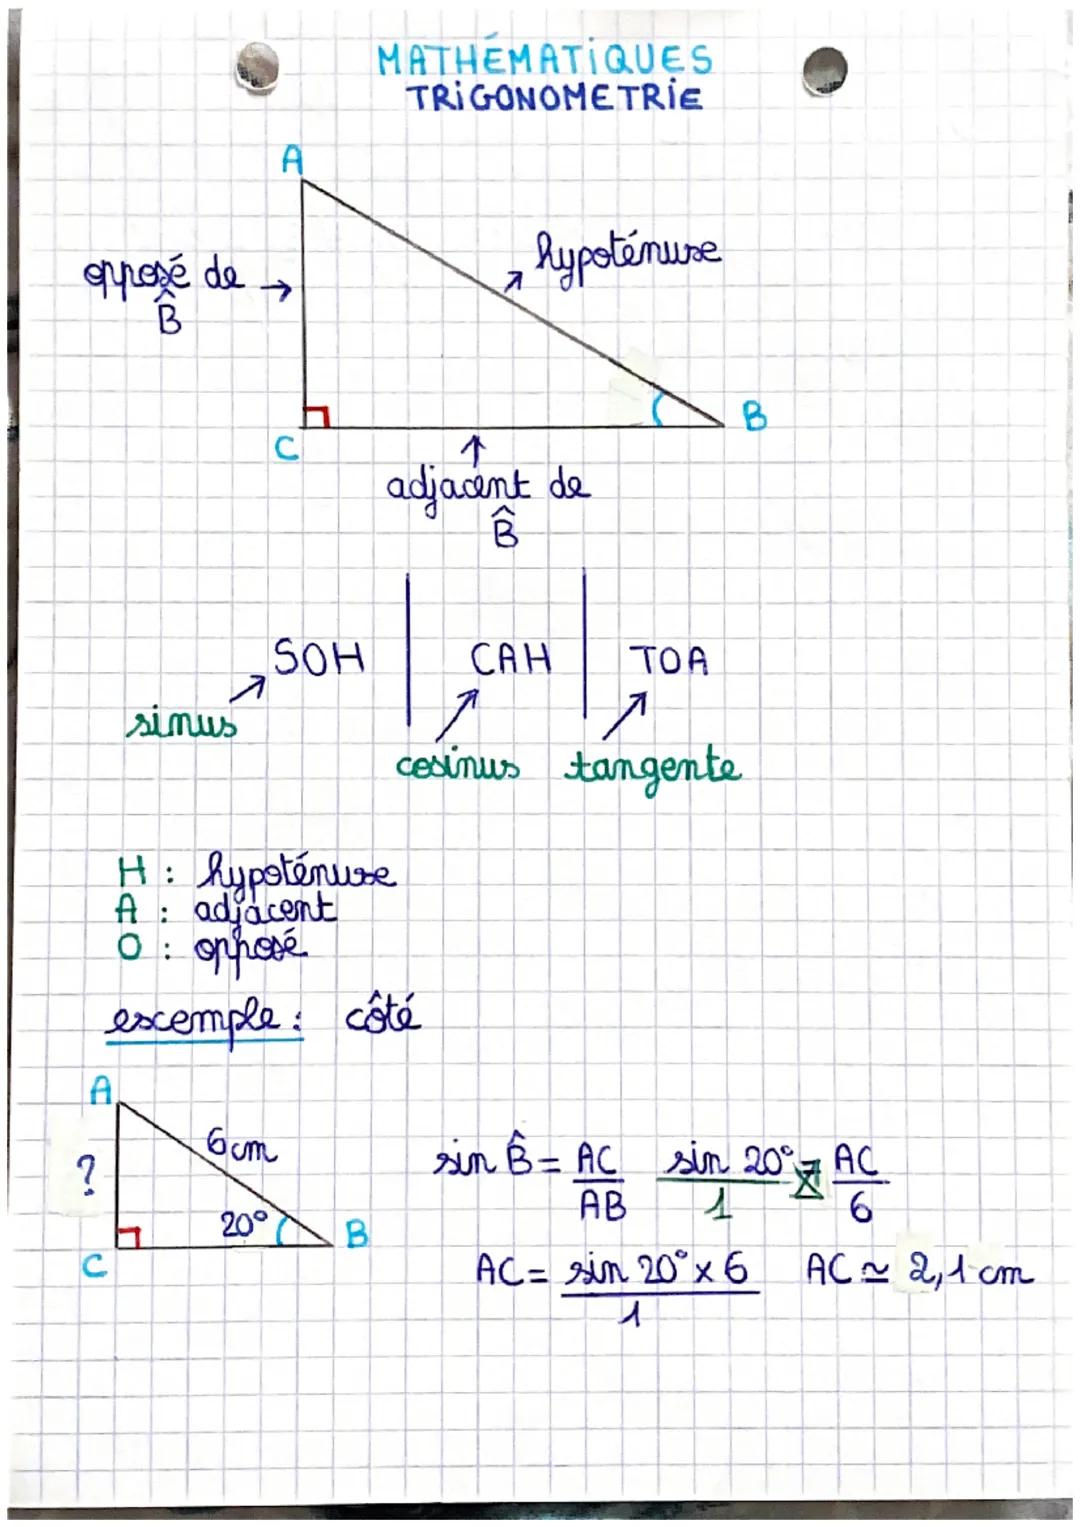 MATHÉMATIQUES
TRIGONOMETRIE
A
hypoténuse
opposé de
B̂
B
C
adjacent de
B̂
SOH | CAH | TOA
sinus
cosinus tangente
H : hypoténuse
A : adjacent
O : opposé
exemple : côté
A
6cm
?
20°
B
C
sin B̂ = AC/AB sin 20°/1 = AC/6
AC = sin 20° x 6/1 AC ≃ 2,1 cm